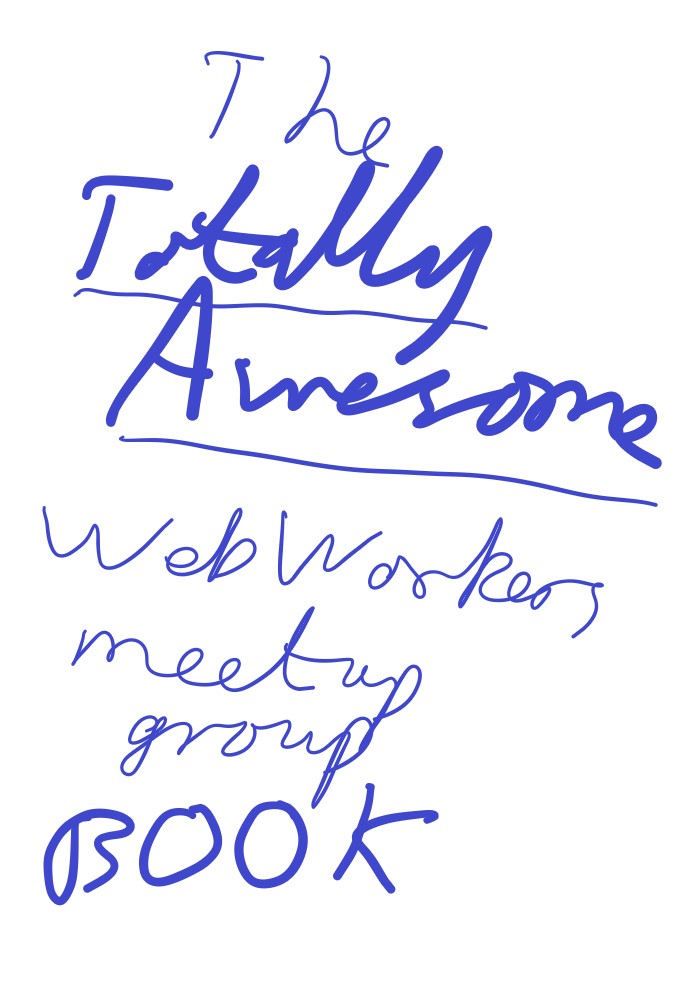 The
Totally
Awesome
WebWorkers
meetup
group
BOOK